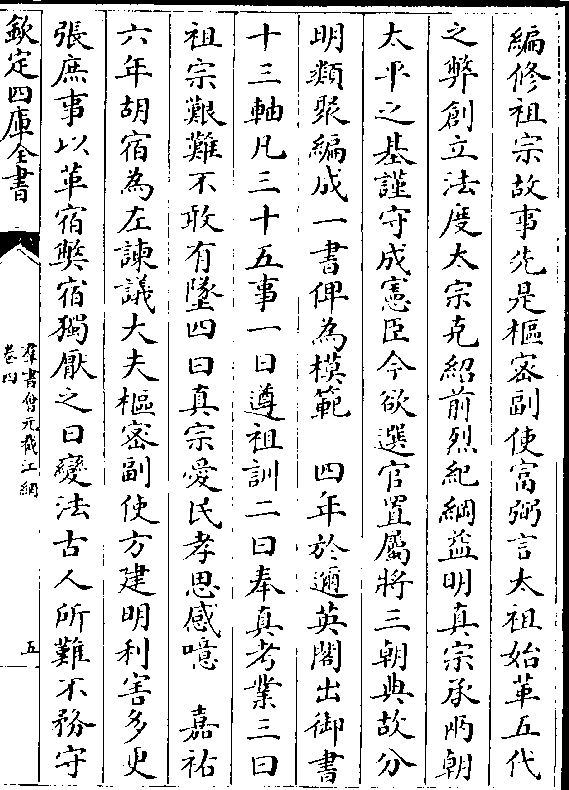 編修祖宗故事先是樞密副使富弼言太祖始革五代
之弊創立法度太宗克紹前烈紀綱益明真宗承兩朝
太平之基謹守成憲臣今欲選官置屬將三朝典故分
明類聚編成一書俾為模範　四年於邇英閣出御書
十三軸凡三十五事一曰遵祖訓二曰奉真考業三曰
祖宗艱難不敢有墜四曰真宗愛民孝思感噫　嘉祐
六年胡宿為左諫議大夫樞密副使方建明利害多更
張庶事以革宿弊宿獨厭之曰變法古人所難不務守
欽定四庫全書
羣書會元截江網
卷四
五